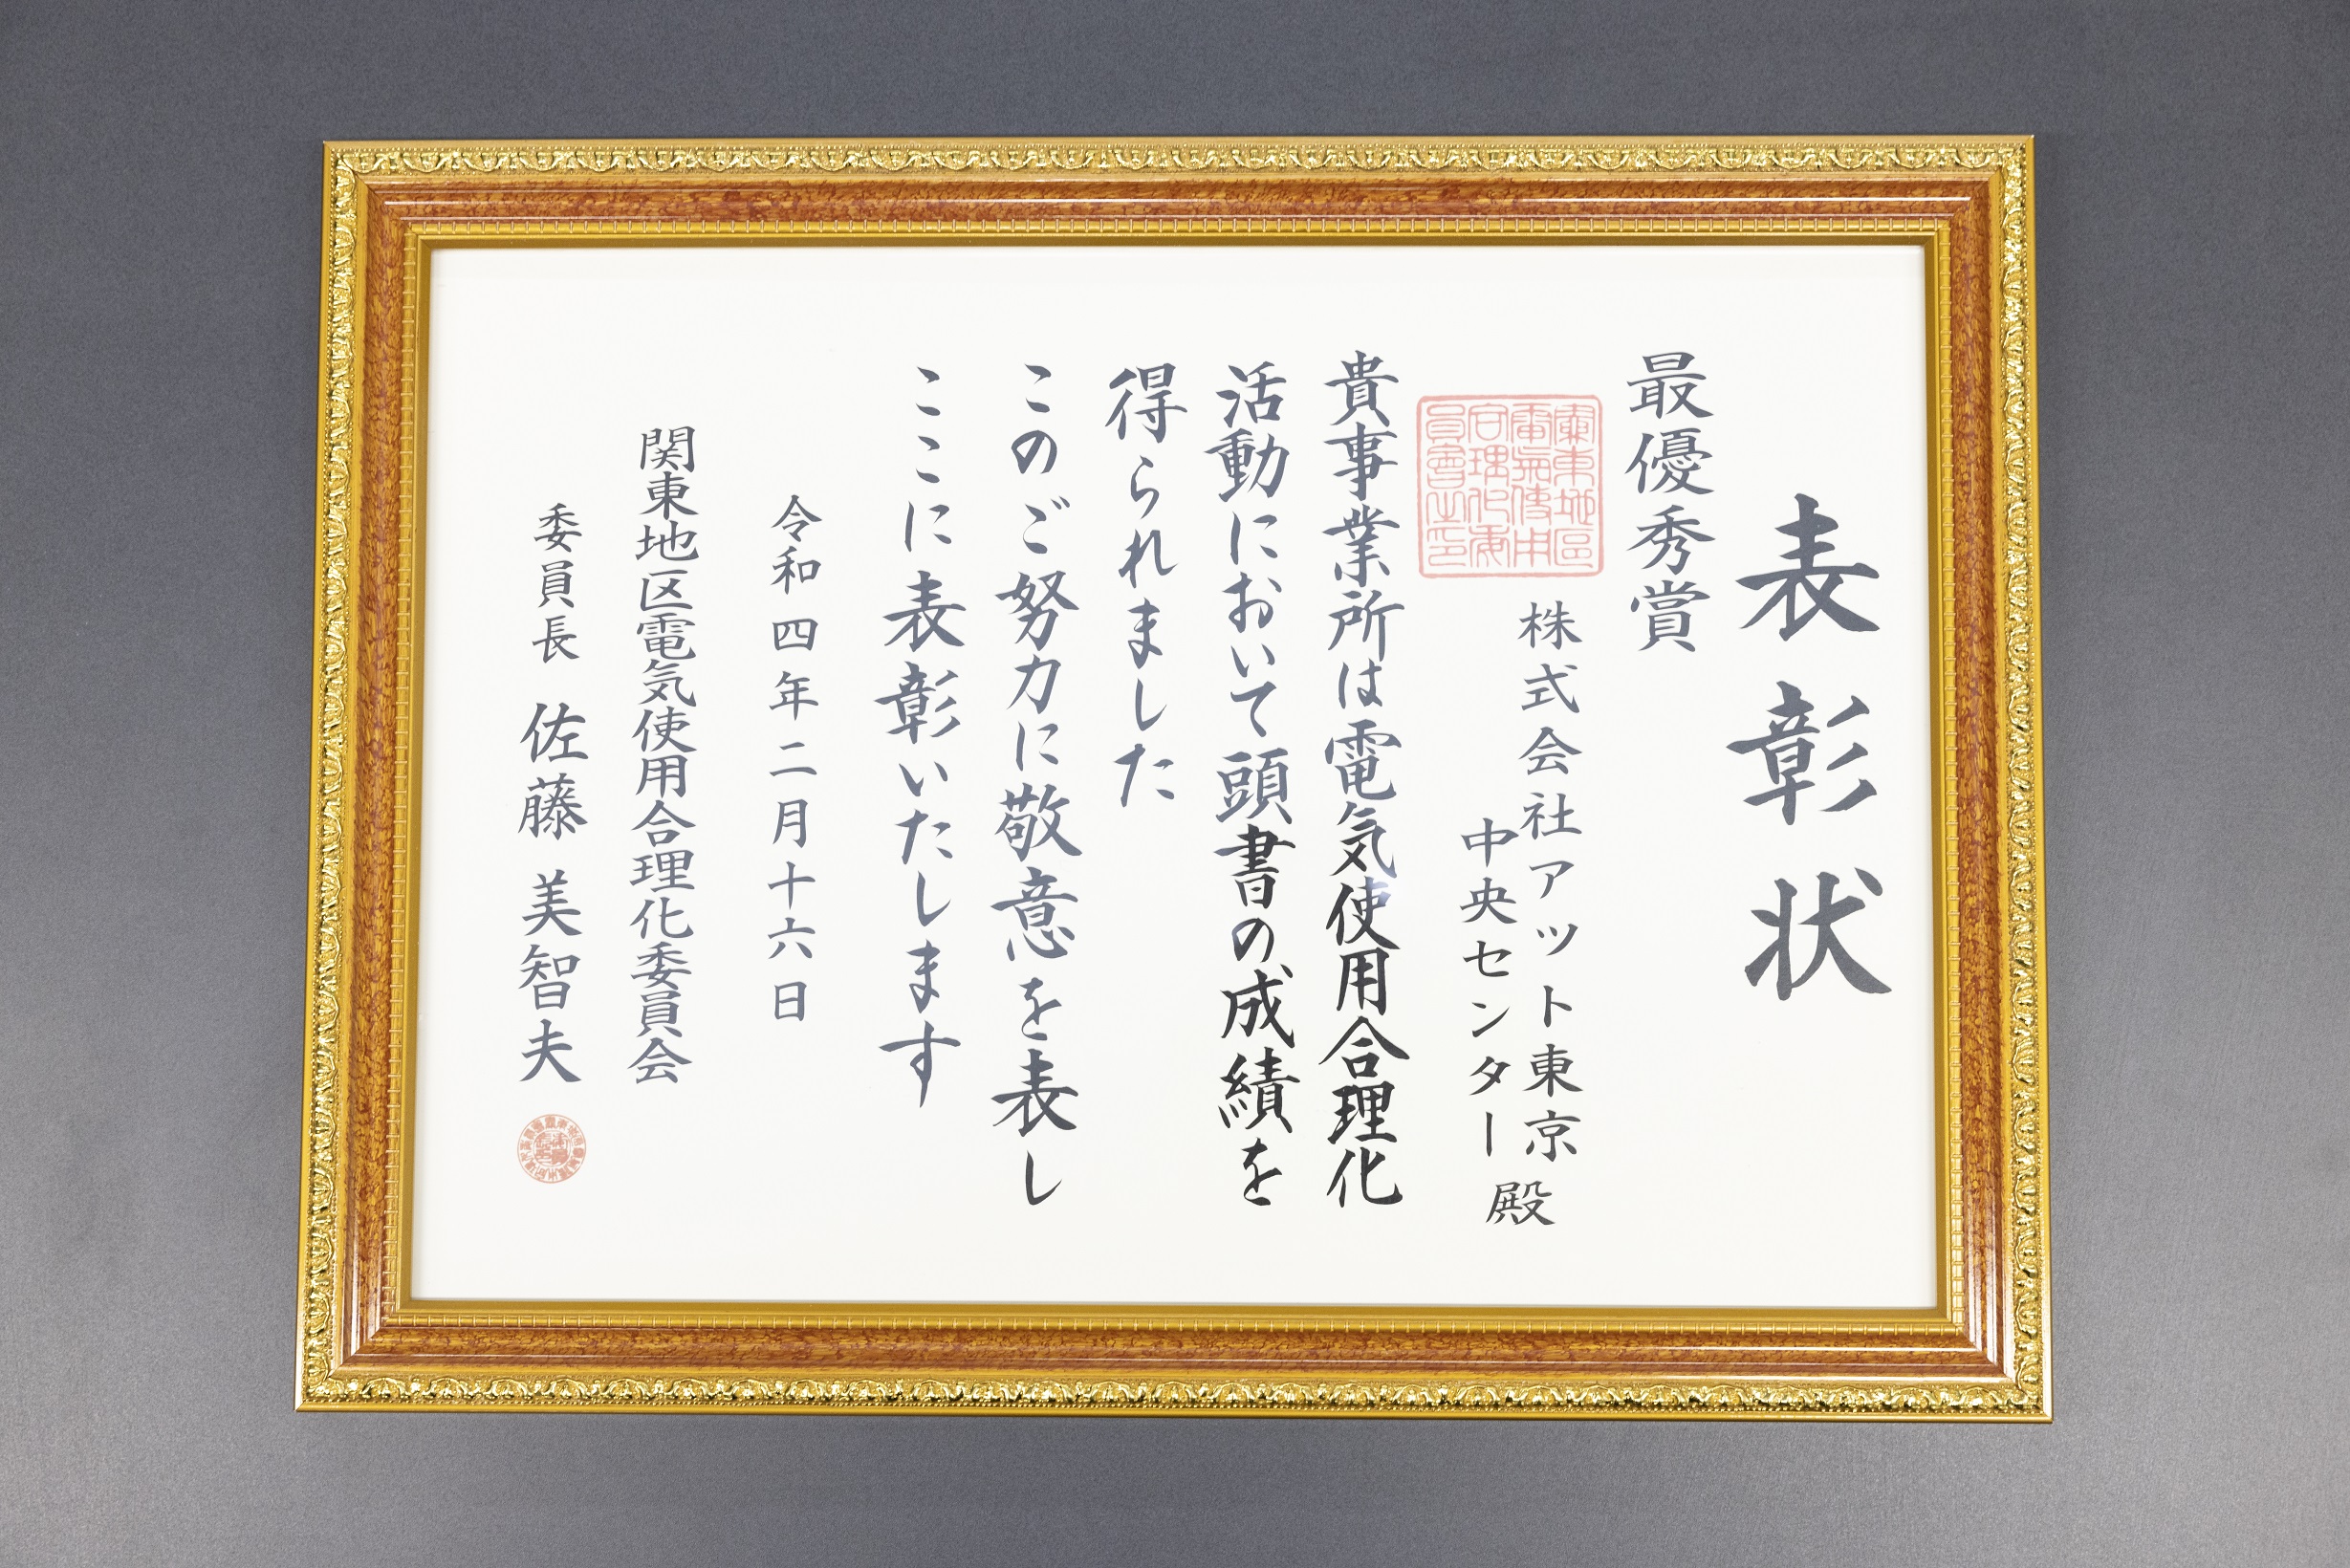 表彰状
最優秀賞
株式会社アット東京
中央センター殿
貴事業所は電気使用合理化
活動において頭書の成績を
得られました
このご努力に敬意を表し
ここに表彰いたします
令和四年二月十六日
関東地区電気使用合理化委員会
委員長 佐藤美智夫